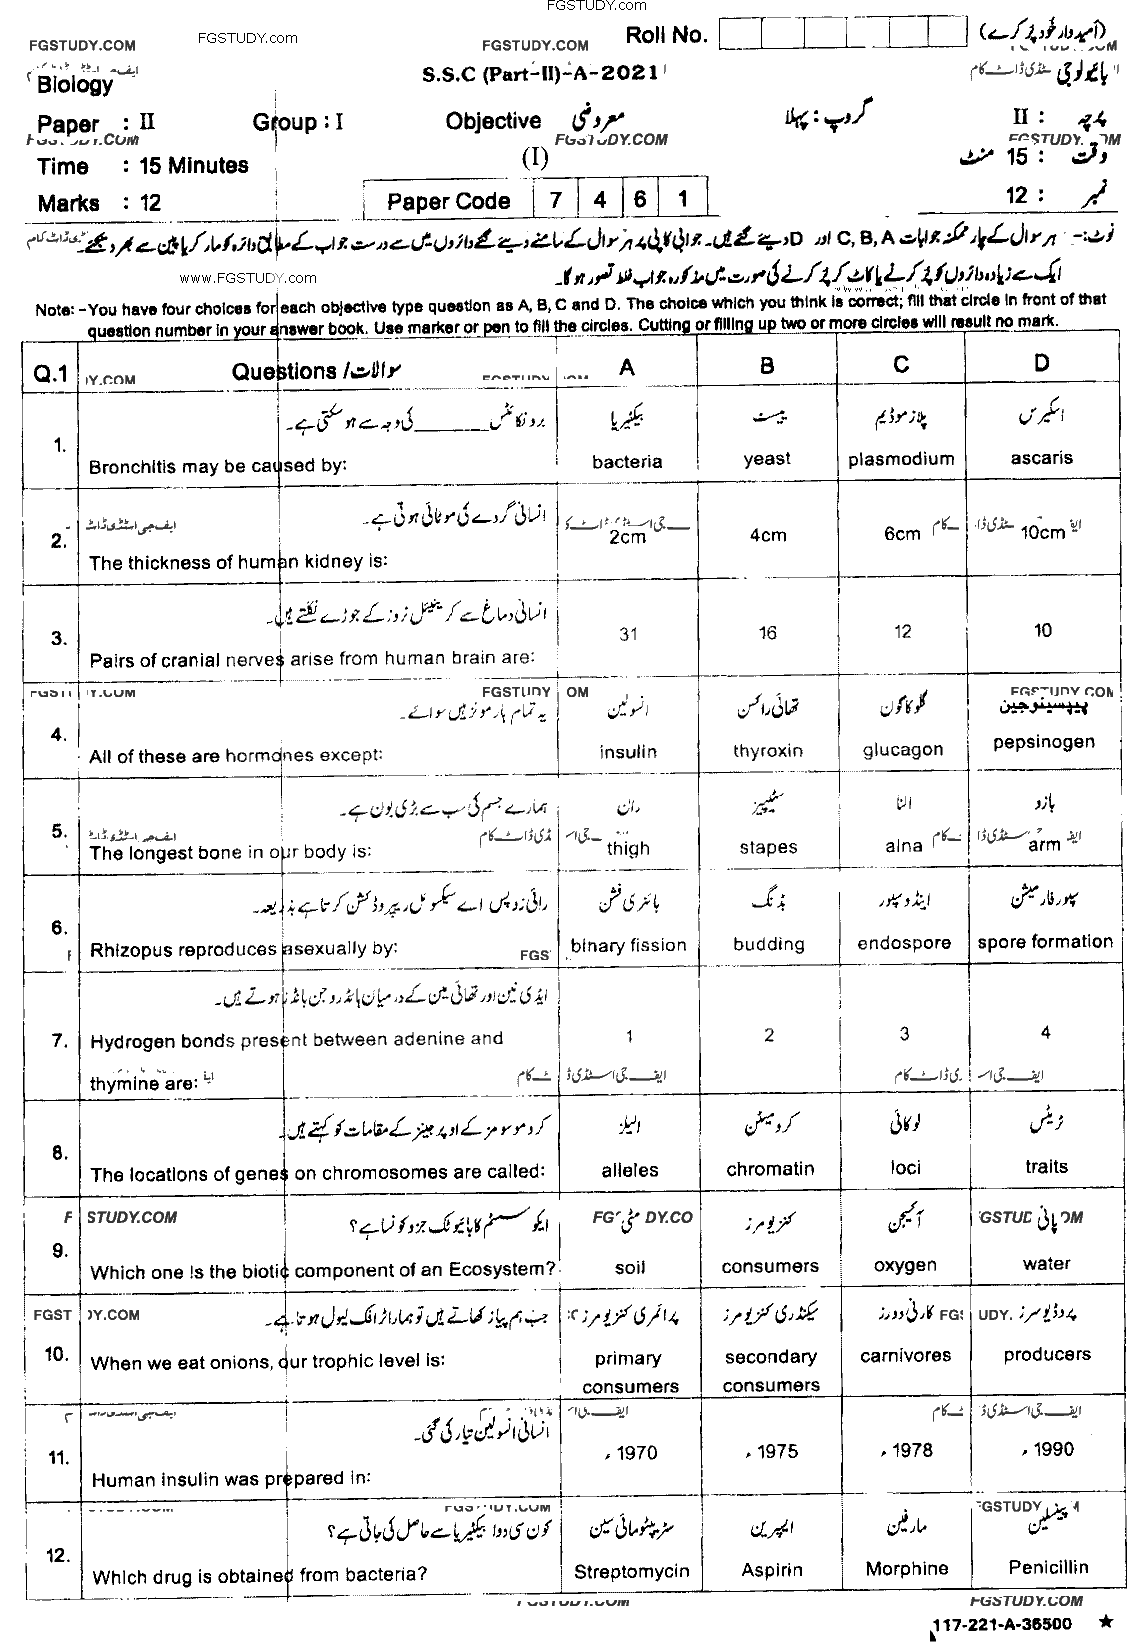 FGSTUDY.com
FGSTUDY.COM FGSTUDY.com FGSTUDY.COM Roll No. (امیدوار خود پُر کرے)
Biology S.S.C (Part-II)-A-2021 بائیولوجی
Paper : II Group : I Objective معروضی گروپ : پہلا پرچہ : II
FGSTUDY.COM
Time : 15 Minutes (I) وقت : 15 منٹ
Marks : 12 Paper Code 7 4 6 1 نمبر : 12
نوٹ:- ہر سوال کے چار ممکنہ جوابات A ،B ،C اور D دیئے گئے ہیں۔ جوابی کاپی پر ہر سوال کے سامنے دیئے گئے دائروں میں سے درست جواب کے مطابق دائرہ کو مارکر یا پین سے بھر دیجئے
ایک سے زیادہ دائروں کو پُر کرنے یا کاٹ کر پُر کرنے کی صورت میں مذکورہ جواب غلط تصور ہوگا۔
www.FGSTUDY.com
Note: -You have four choices for each objective type question as A, B, C and D. The choice which you think is correct; fill that circle in front of that
question number in your answer book. Use marker or pen to fill the circles. Cutting or filling up two or more circles will result no mark.
Q.1 Questions / سوالات A B C D
برونکائٹس ______ کی وجہ سے ہو سکتی ہے۔ بیکٹیریا ییسٹ پلازموڈیم اسکیرس
1. Bronchitis may be caused by: bacteria yeast plasmodium ascaris
انسانی گردے کی موٹائی ہوتی ہے۔
2. The thickness of human kidney is: 2cm 4cm 6cm 10cm
انسانی دماغ سے کرینیئل نروز کے جوڑے نکلتے ہیں۔
3. Pairs of cranial nerves arise from human brain are: 31 16 12 10
FGSTUDY.COM
یہ تمام ہارمونز ہیں سوائے۔ انسولین تھائی راکسن گلوکاگون پیپسینوجین
4. All of these are hormones except: insulin thyroxin glucagon pepsinogen
ہمارے جسم کی سب سے بڑی بون ہے۔ ران سٹیپیز النا بازو
5. The longest bone in our body is: thigh stapes alna arm
رائی زوپس اے سیکسوئل ریپروڈکشن کرتا ہے بذریعہ۔ بائنری فشن بڈنگ اینڈوسپور سپور فارمیشن
6. Rhizopus reproduces asexually by: binary fission budding endospore spore formation
ایڈی نین اور تھائی مین کے درمیان ہائڈروجن بانڈز ہوتے ہیں۔
7. Hydrogen bonds present between adenine and 1 2 3 4
thymine are:
کروموسومز کے اوپر جینز کے مقامات کو کہتے ہیں۔ الیلز کرومیٹن لوکائی ٹریٹس
8. The locations of genes on chromosomes are called: alleles chromatin loci traits
STUDY.COM ایکوسسٹم کا بائیوٹک جزو کونسا ہے؟ مٹی کنزیومرز آکسیجن پانی
9. Which one is the biotic component of an Ecosystem? soil consumers oxygen water
جب ہم پیاز کھاتے ہیں تو ہمارا ٹرافک لیول ہوتا ہے۔ پرائمری کنزیومرز سیکنڈری کنزیومرز کارنی وورز پروڈیوسرز
10. When we eat onions, our trophic level is: primary consumers secondary consumers carnivores producers
انسانی انسولین تیار کی گئی۔
11. Human insulin was prepared in: 1970ء 1975ء 1978ء 1990ء
کون سی دوا بیکٹیریا سے حاصل کی جاتی ہے؟ سٹریپٹومائی سین ایسپرین مارفین پینسلین
12. Which drug is obtained from bacteria? Streptomycin Aspirin Morphine Penicillin
FGSTUDY.COM
117-221-A-36500 ★